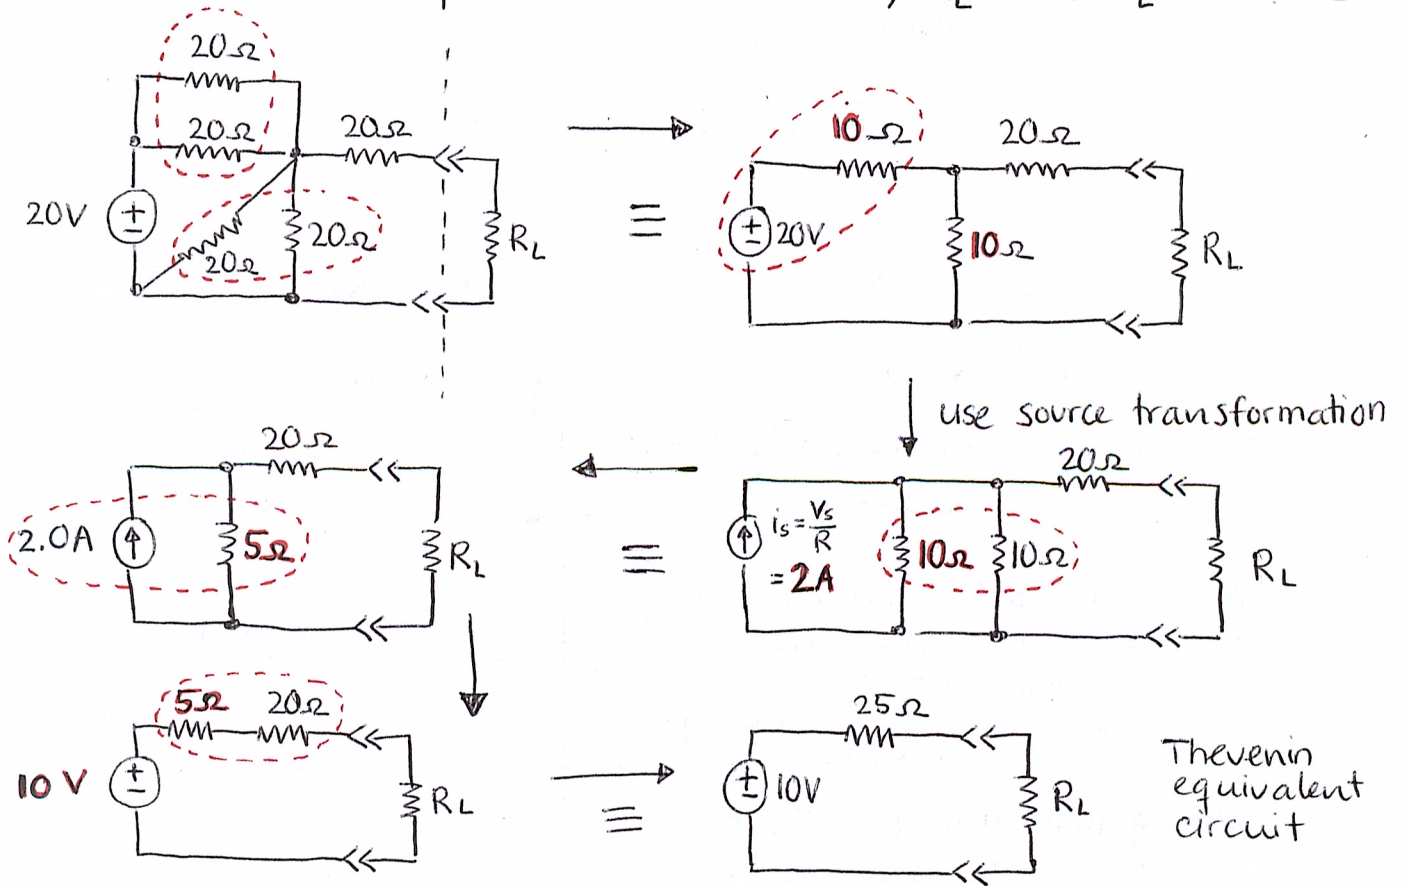 20Ω
20Ω
20Ω
20V
20Ω
20Ω
R_L
≡
10Ω
20Ω
20V
10Ω
R_L
use source transformation
20Ω
2.0A
5Ω
R_L
≡
20Ω
i_s = V_s/R
= 2A
10Ω
10Ω
R_L
5Ω 20Ω
10 V
R_L
≡
25Ω
10V
R_L
Thevenin
equivalent
circuit